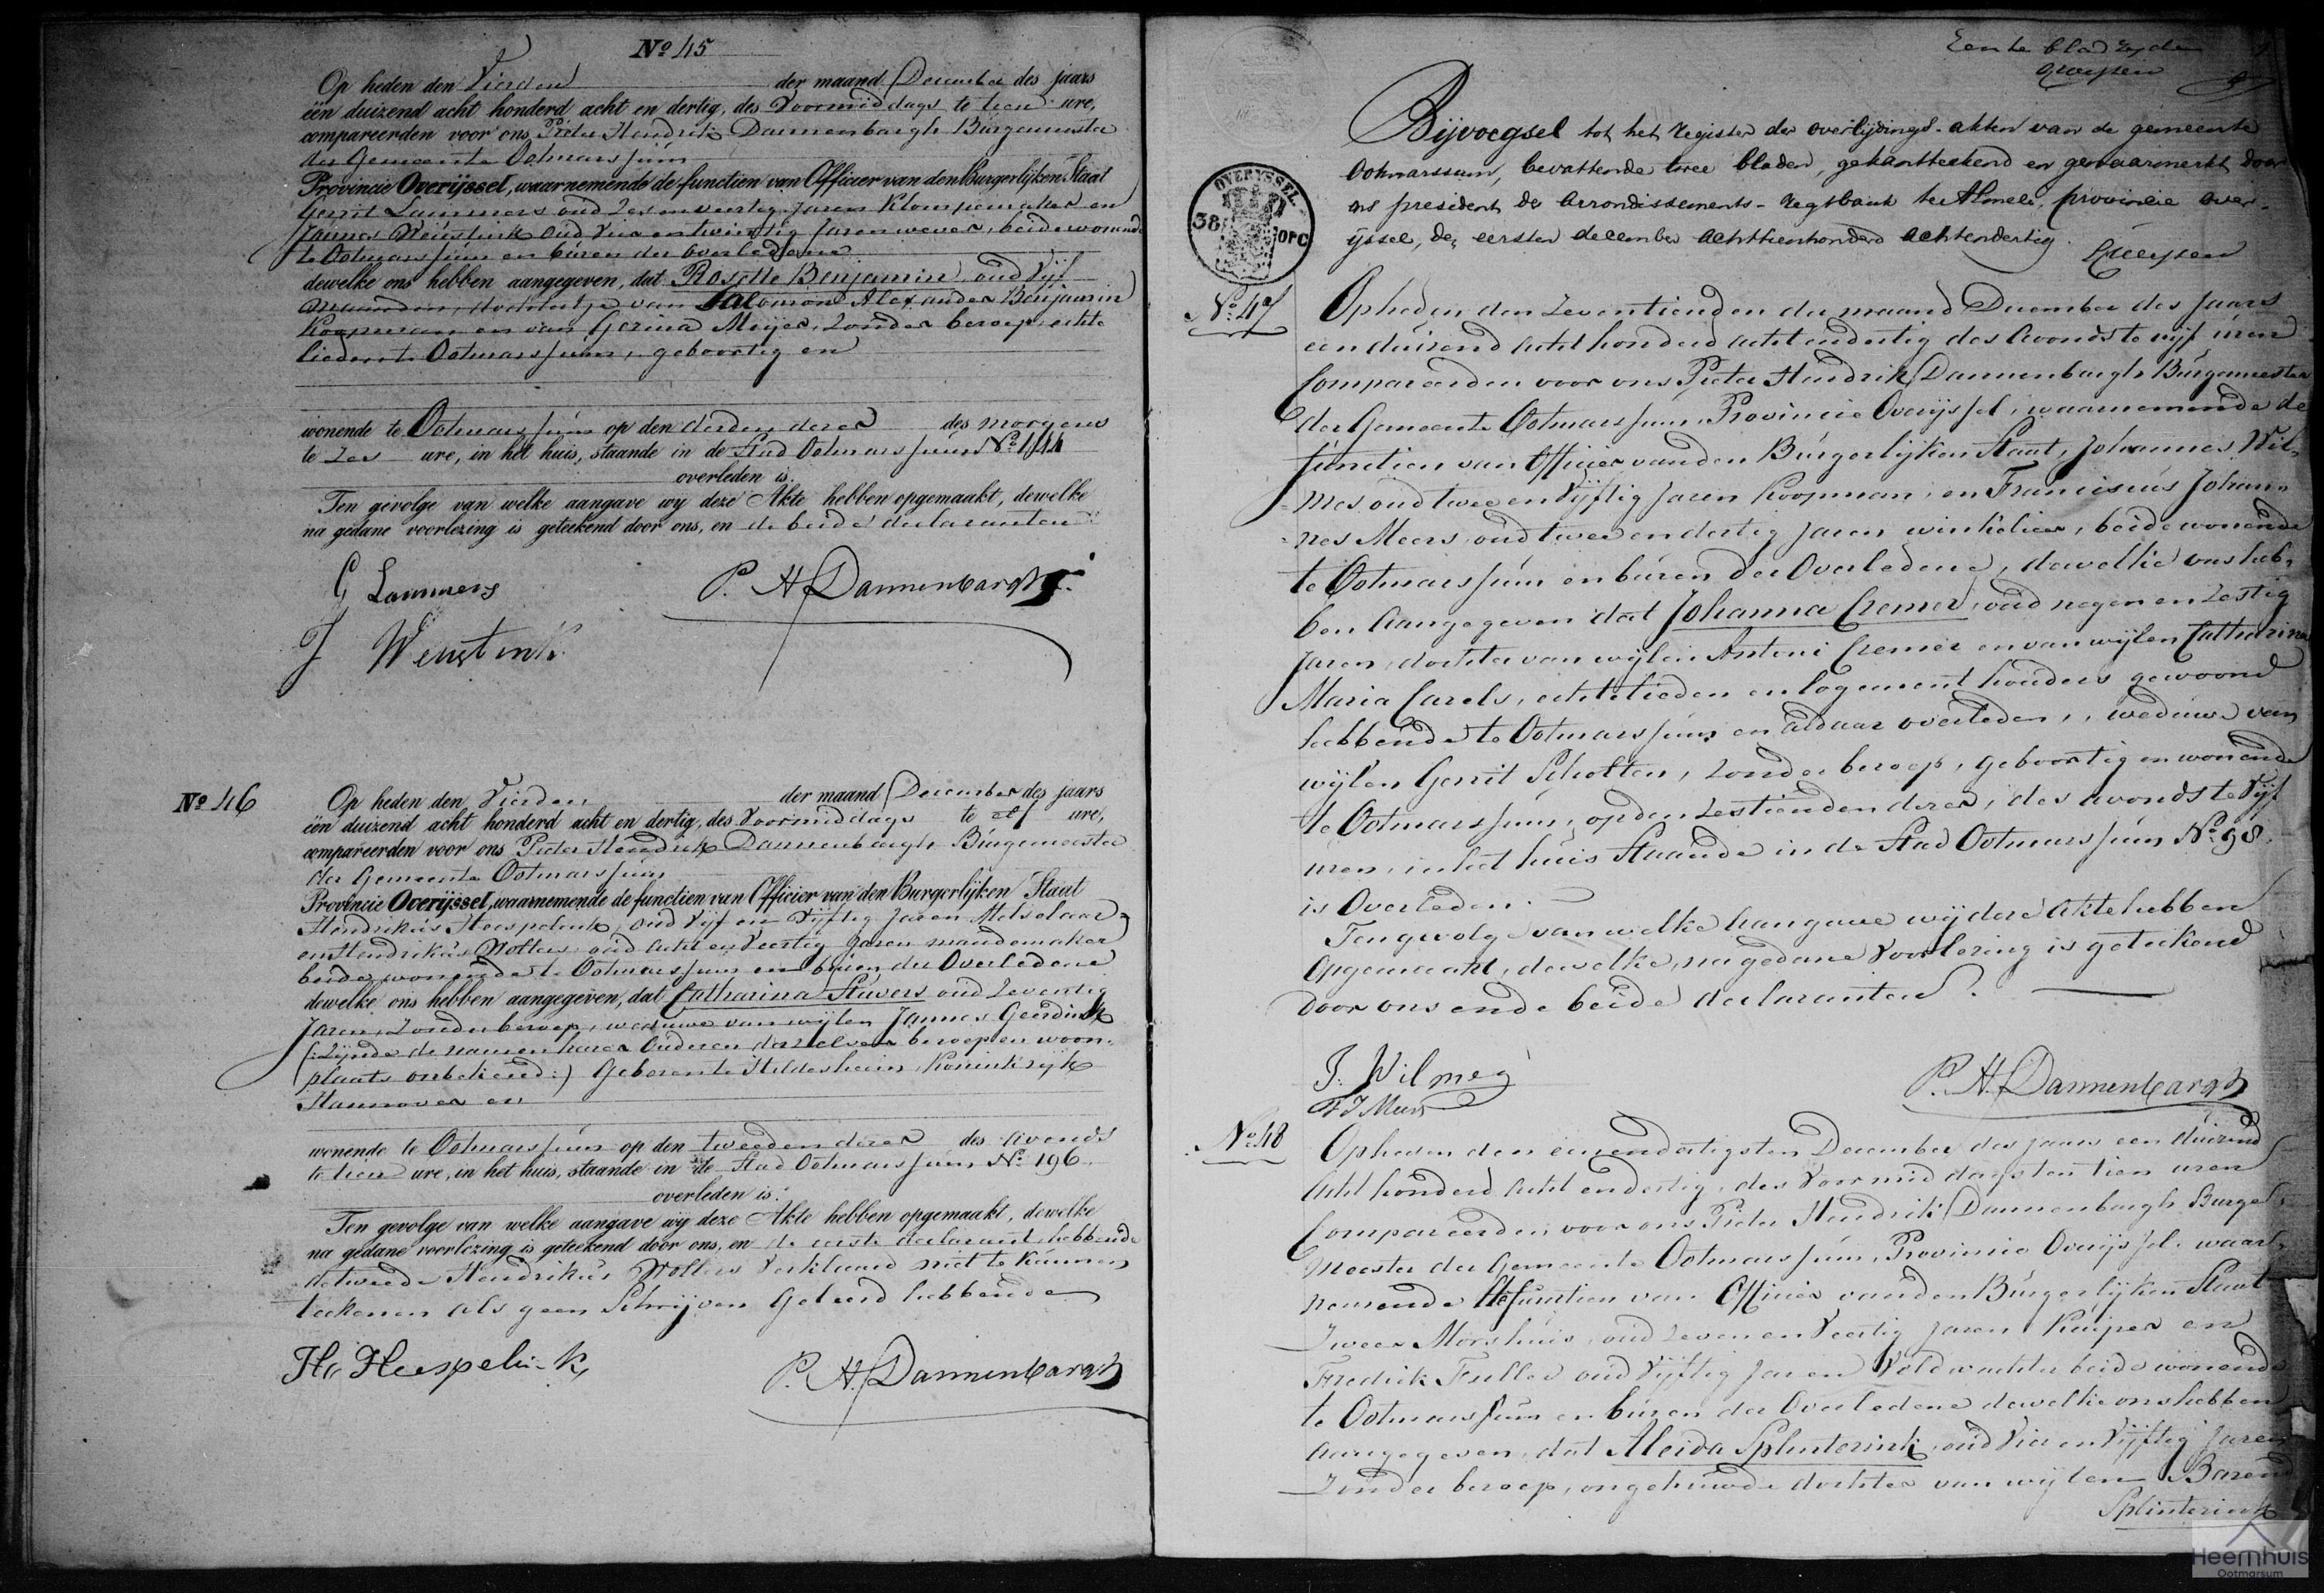 No 45
Op heden den Vierden der maand December des jaars
één duizend acht honderd acht en dertig, des Voormiddags te tien ure,
compareerden voor ons Pieter Hendrik Dannenbargh Burgemeester
der Gemeente Ootmarssum
Provincie Overijssel, waarnemende de functien van Officier van den Burgerlijken Staat
Gerrit Lammers oud Zes en veertig Jaren Klompemaker en
Jannes Weustink oud Vier en twintig Jaren wever, beide wonende
te Ootmarssum en buren der overledene
dewelke ons hebben aangegeven, dat Rosette Benjamin, oud Vijf
maanden, dochtertje van Salomon Alexander Benjamin
Koopman en van Gerina Meijer, zonder beroep, echte
lieden te Ootmarssum, geboortig en
wonende te Ootmarssum op den derden dezer des morgens
te Zes ure, in het huis, staande in de Stad Ootmarssum No 144
overleden is.
Ten gevolge van welke aangave wy deze Akte hebben opgemaakt, dewelke
na gedane voorlezing is geteekend door ons, en de beide declaranten
G Lammers
P. H Dannenbargh
J Weustink
No 46
Op heden den Vierden der maand December des jaars
één duizend acht honderd acht en dertig, des Voormiddags te elf ure,
compareerden voor ons Pieter Hendrik Dannenbargh Burgemeester
der Gemeente Ootmarssum
Provincie Overijssel, waarnemende de functien van Officier van den Burgerlijken Staat
Hendrikus Heespelink, oud Vijf en Vijftig Jaren Metselaar
en Hendrikus Wolters oud acht en Veertig Jaren mandemaker
beide wonende te Ootmarssum en buren der Overledene
dewelke ons hebben aangegeven, dat Catharina Stuvers oud Zeventig
Jaren, Zonder beroep, weduwe van wijlen Jannes Geerdink
(:Zijnde de namen harer Ouderen derzelver beroep en woon-
plaats onbekend:) Geboren te Hildesheim, Koninkrijk
Hannover en
wonende te Ootmarssum op den tweeden dezer des avonds
te tien ure, in het huis, staande in de Stad Ootmarssum No 196
overleden is.
Ten gevolge van welke aangave wy deze Akte hebben opgemaakt, dewelke
na gedane voorlezing is geteekend door ons, en de eerste declarant hebbende
de tweede Hendrikus Wolters Verklaard niet te kunnen
teekenen als geen Schrijven Geleerd hebbende
Hs Heespelink
P. H. Dannenbargh
Eerste bladzyde
Bijvoegsel tot het register der overlijdings-akten van de gemeente
Ootmarssum, bevattende twee bladen, gekantteekend en gewaarmerkt door
ons president der Arrondissements-regtbank te Almelo, provincie over-
ijssel, den eersten december achttienhonderd achtendertig.
OVERYSSEL
38
No 47
Op heden den Zeventienden der maand December des Jaars
een duizend acht honderd acht en dertig des Avonds te vijf uren
Compareerden voor ons Pieter Hendrik Dannenbargh Burgemeester
der Gemeente Ootmarssum, Provincie Overijssel, waarnemende de
functien van Officier van den Burgerlijken Staat, Johannes Wil-
mes oud twee en Vijftig Jaren Koopman, en Franciscus Johan-
nes Meers oud twee en dertig Jaren winkelier, beide wonende
te Ootmarssum en buren der Overledene, dewelke ons heb-
ben Aangegeven dat Johanna Cremer, oud negen en Zestig
Jaren, dochter van wijlen Antoni Cremer en van wijlen Catharina
Maria Carels, echtelieden en logement houders gewoond
hebbende te Ootmarssum en aldaar overleden, weduwe van
wijlen Gerrit Scholten, Zonder beroep, geboortig en wonende
te Ootmarssum, op den Zestienden dezer, des avonds te Vijf
uren, in het huis Staande in de Stad Ootmarssum No 98.
is Overleden.
Ten gevolge van welke Aangave wij deze Akte hebben
Opgemaakt, dewelke, na gedane Voorlezing is geteekend
door ons en de beide declaranten.
J. Wilmes
P. H. Dannenbargh
F J Meers
No 48
Op heden den eenendertigsten December des jaars een duizend
Acht honderd acht en dertig, des Voormiddags ten tien uren
Compareerden voor ons Pieter Hendrik Dannenbargh Burge-
meester der Gemeente Ootmarssum, Provincie Overijssel, waar-
nemende de functien van Officier van den Burgerlijken Staat
Zweer Morshuis, oud Zeven en Veertig Jaren Kuiper en
Fredrik Fuller oud Vijftig Jaren Veldwachter beide wonende
te Ootmarssum en buren der Overledene dewelke ons hebben
aangegeven, dat Aleida Splinterink, oud Vier en Vijftig Jaren
Zonder beroep, ongehuwde dochter van wijlen Barend
Splinterink
Heemhuis
Ootmarsum